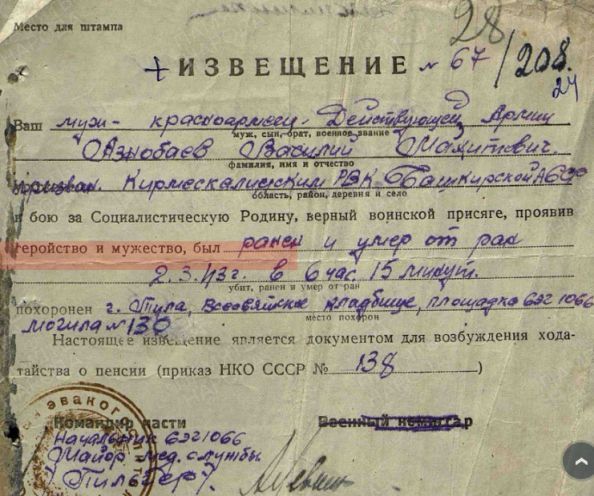 28
Место для штампа
+ ИЗВЕЩЕНИЕ № 67/208.
24
Ваш муж - красноармеец Действующей Армии
муж, сын, брат, военное звание
Азнобаев Василий Махитович.
фамилия, имя и отчество
призван. Кирмескалинским РВК Башкирской АССР
область, район, деревня и село
в бою за Социалистическую Родину, верный воинской присяге, проявив
геройство и мужество, был ранен и умер от ран
2.3.43г. в 6 час. 15 минут.
убит, ранен и умер от ран
похоронен г. Тула, Всесвяйское кладбище, площадка ЭГ 1066
место похорон
могила № 130
Настоящее извещение является документом для возбуждения хода-
тайства о пенсии (приказ НКО СССР № 138)
ЭВАКОГ
Командир части
Военный комиссар
Начальник ЭГ 1066
Майор мед. службы
(Тильгер)